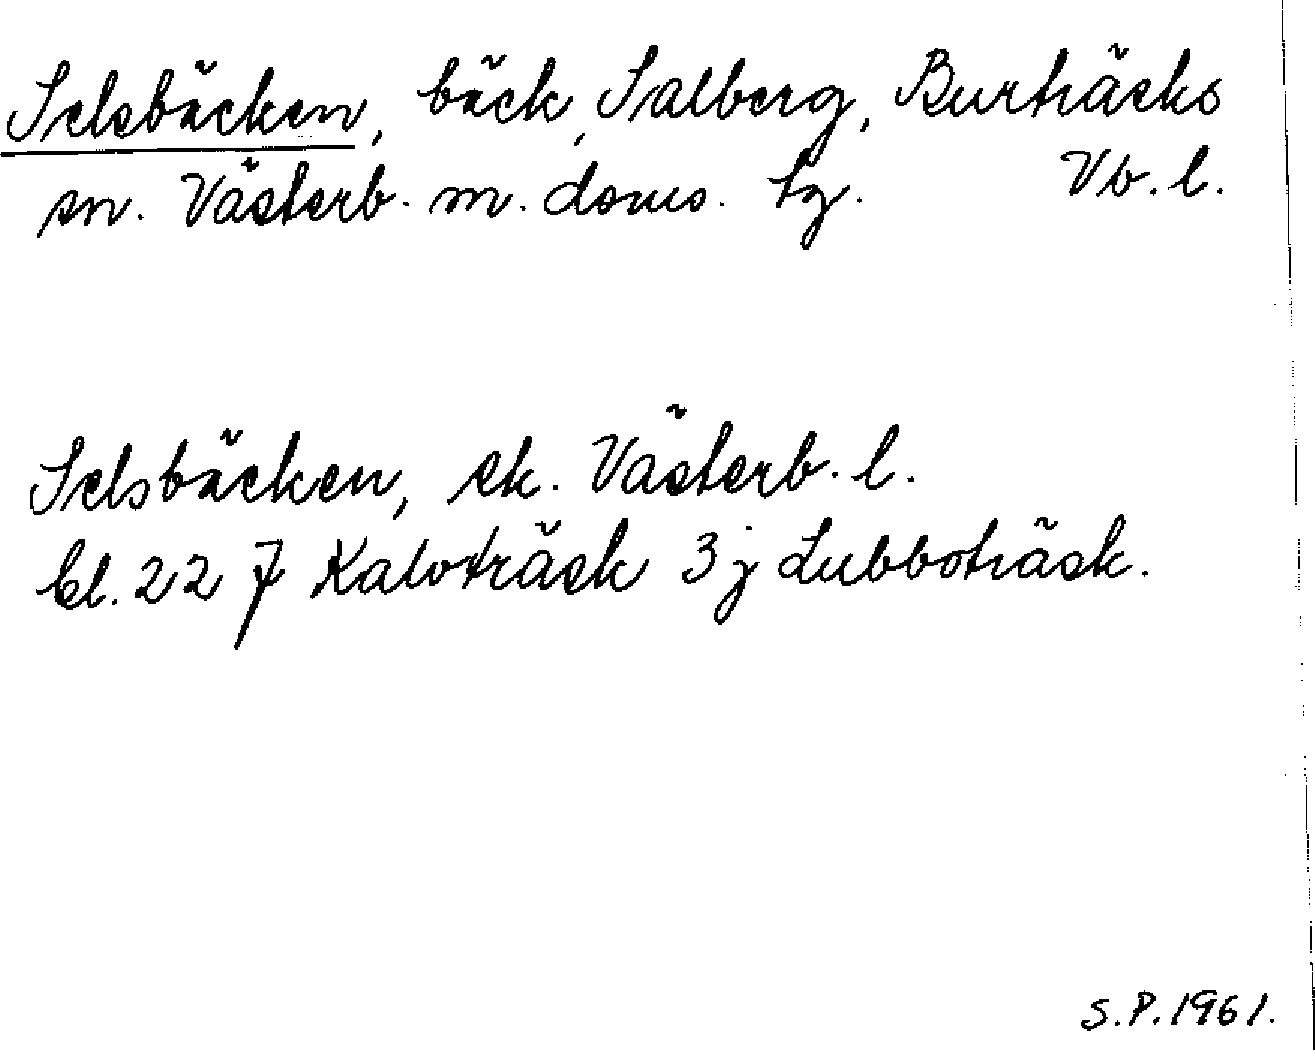 Selsbäcken, bäck, Salberg, Burträsks
sn. Västerb. m. doms. tg. Vb. l.
Selsbäcken, ek. Västerb. l.
bl. 22 7 Kalvträsk 3 j Lubboträsk.
S.P. 1961.